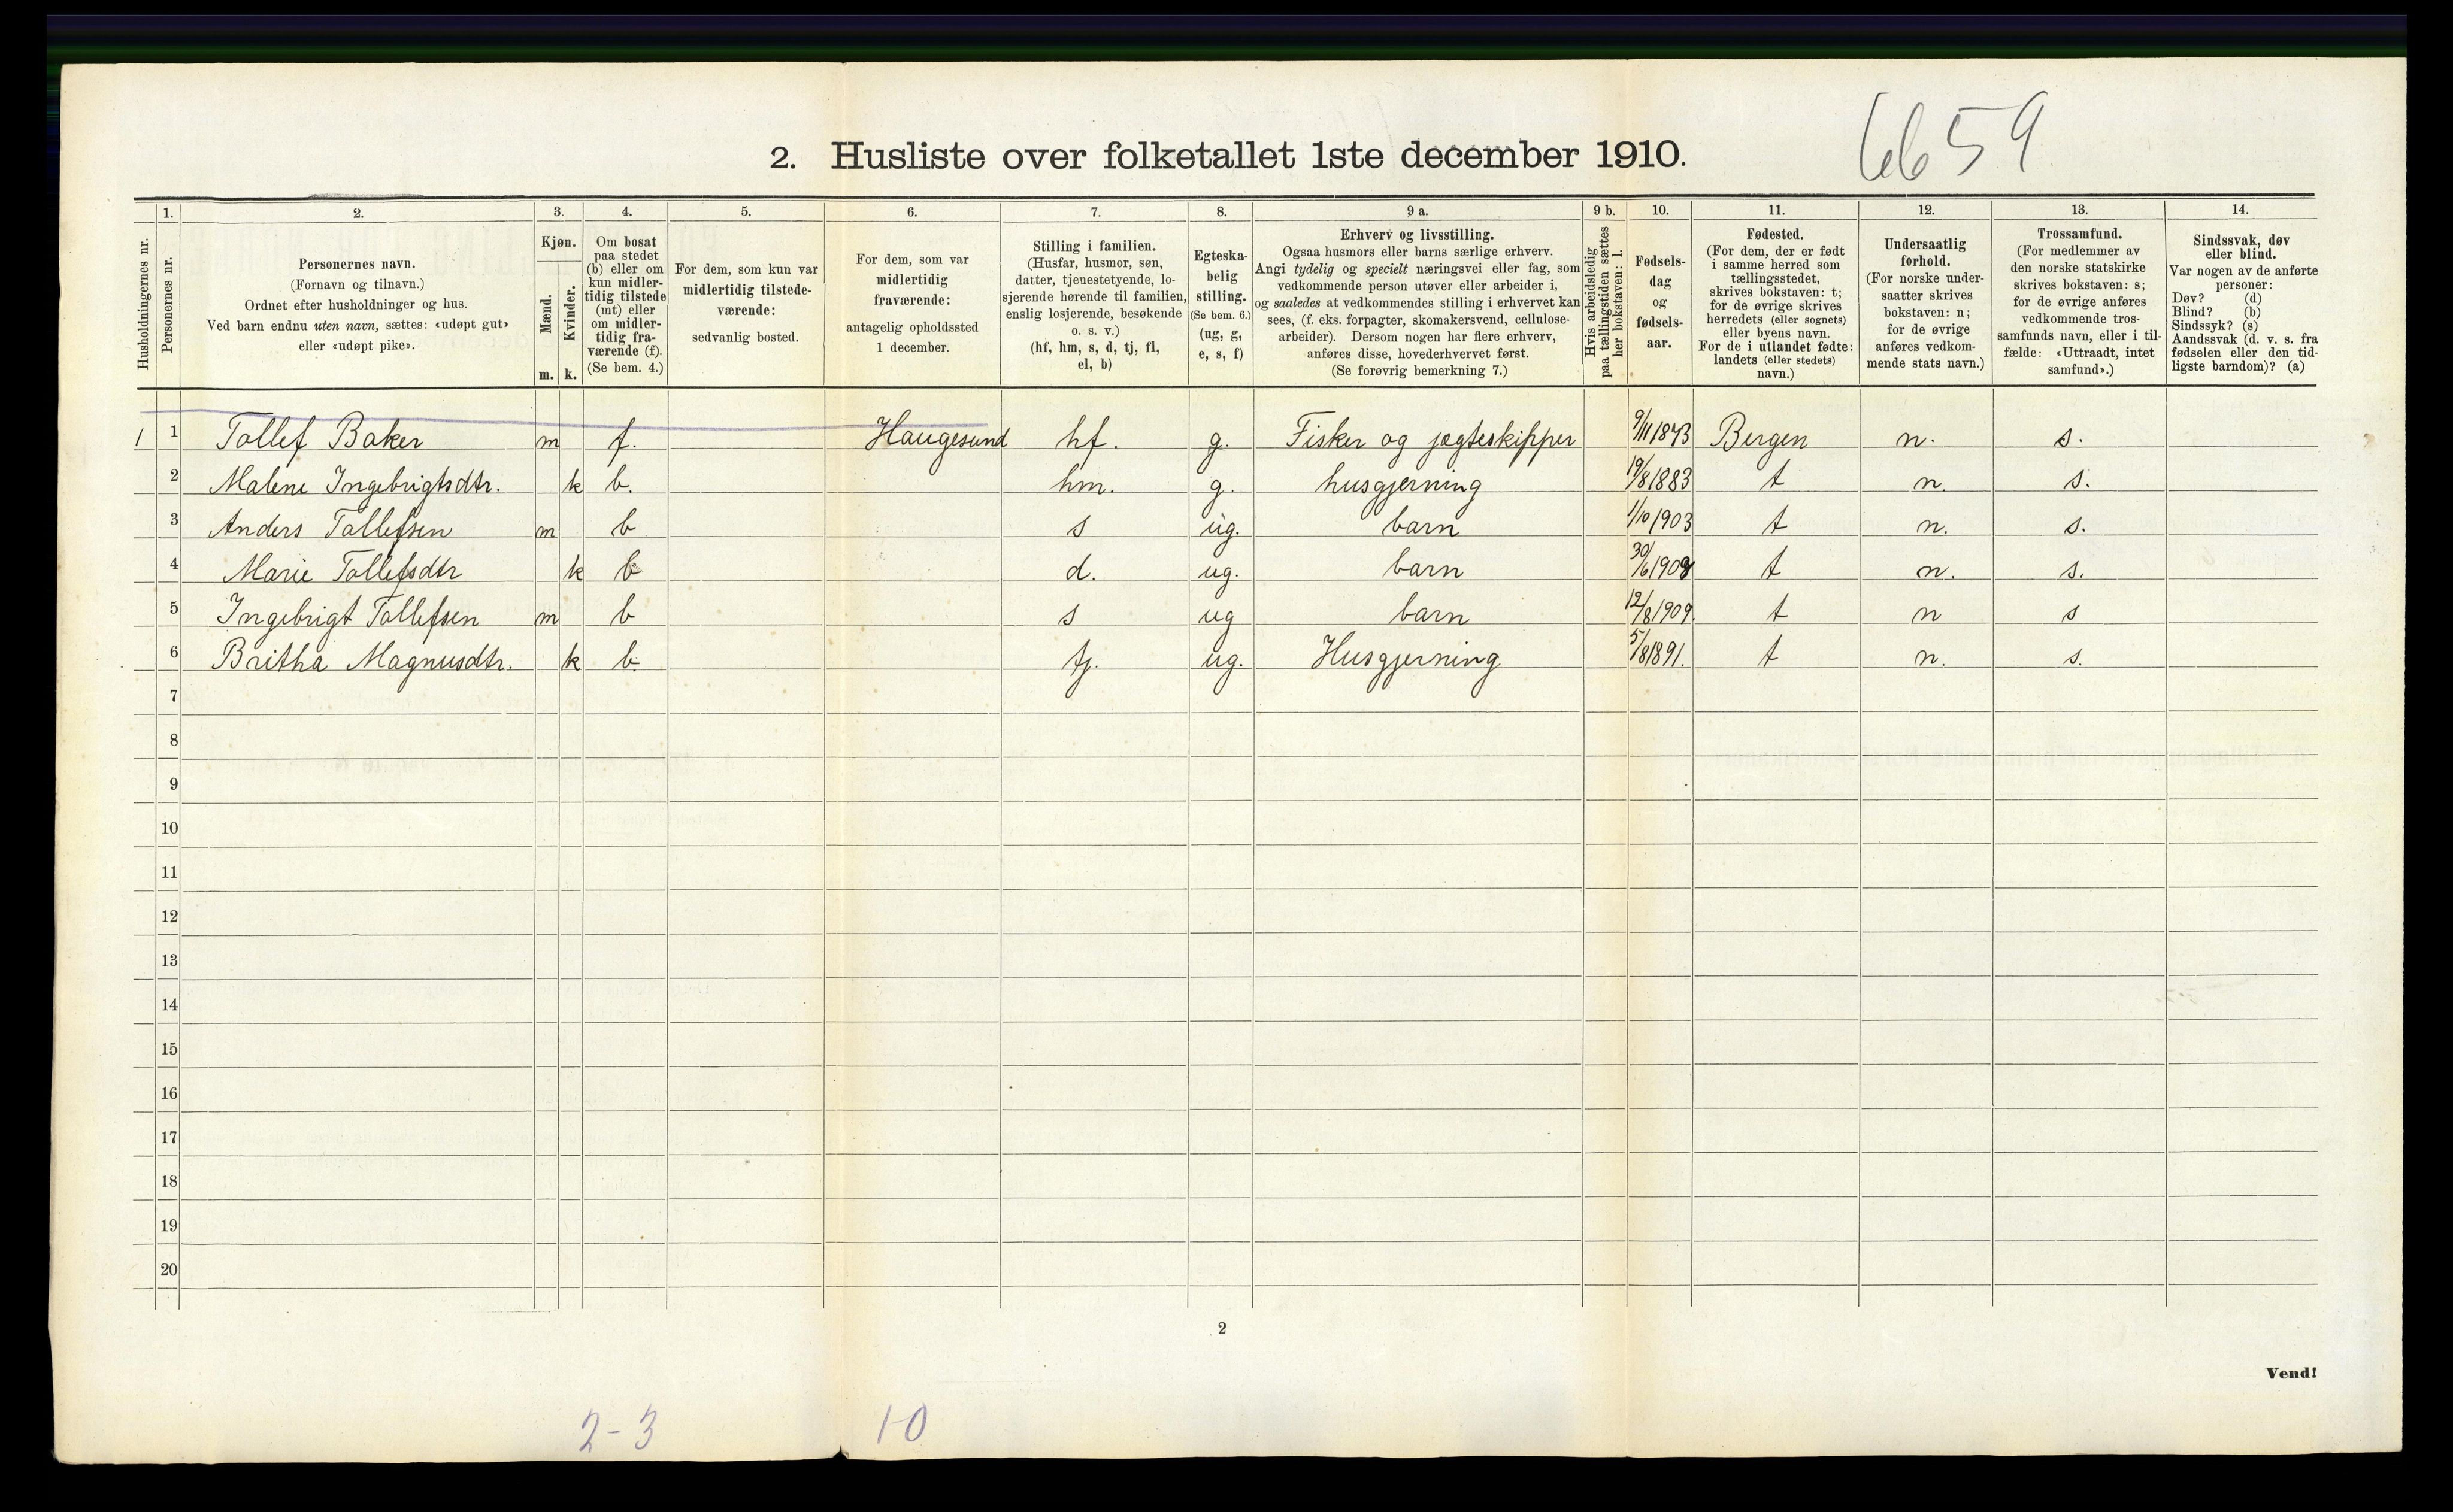 6659
2. Husliste over folketallet 1ste december 1910.
Husholdningernes nr.
1.
Personernes nr.
2.
Personernes navn.
(Fornavn og tilnavn.)
Ordnet efter husholdninger og hus.
Ved barn endnu uten navn, sættes: «udøpt gut»
eller «udøpt pike».
3.
Kjøn.
Mænd.
Kvinder.
m. k.
4.
Om bosat
paa stedet
(b) eller om
kun midler-
tidig tilstede
(mt) eller
om midler-
tidig fra-
værende (f).
(Se bem. 4.)
5.
For dem, som kun var
midlertidig tilstede-
værende:
sedvanlig bosted.
6.
For dem, som var
midlertidig
fraværende:
antagelig opholdssted
1 december.
7.
Stilling i familien.
(Husfar, husmor, søn,
datter, tjenestetyende, lo-
sjerende hørende til familien,
enslig losjerende, besøkende
o. s. v.)
(hf, hm, s, d, tj, fl,
el, b)
8.
Egteska-
belig
stilling.
(Se bem. 6.)
(ug, g,
e, s, f)
9 a.
Erhverv og livsstilling.
Ogsaa husmors eller barns særlige erhverv.
Angi tydelig og specielt næringsvei eller fag, som
vedkommende person utøver eller arbeider i,
og saaledes at vedkommendes stilling i erhvervet kan
sees, (f. eks. forpagter, skomakersvend, cellulose-
arbeider). Dersom nogen har flere erhverv,
anføres disse, hovederhvervet først.
(Se forøvrig bemerkning 7.)
9 b.
Hvis arbeidsledig
paa tællingstiden sættes
her bokstaven: l.
10.
Fødsels-
dag
og
fødsels-
aar.
11.
Fødested.
(For dem, der er født
i samme herred som
tællingsstedet,
skrives bokstaven: t;
for de øvrige skrives
herredets (eller sognets)
eller byens navn.
For de i utlandet fødte:
landets (eller stedets)
navn.)
12.
Undersaatlig
forhold.
(For norske under-
saatter skrives
bokstaven: n;
for de øvrige
anføres vedkom-
mende stats navn.)
13.
Trossamfund.
(For medlemmer av
den norske statskirke
skrives bokstaven: s;
for de øvrige anføres
vedkommende tros-
samfunds navn, eller i til-
fælde: «Uttraadt, intet
samfund».)
14.
Sindssvak, døv
eller blind.
Var nogen av de anførte
personer:
Døv? (d)
Blind? (b)
Sindssyk? (s)
Aandssvak (d. v. s. fra
fødselen eller den tid-
ligste barndom)? (a)
1 1 Tollef Baker m f. Haugesund hf. g. Fisker og jægteskipper 9/11 1873 Bergen n. s.
2 Malene Ingebrigtsdtr. k b. hm. g. husgjerning 19/8 1883 t n. s.
3 Anders Tollefsen m b s ug. barn 1/10 1903 t n. s.
4 Marie Tollefsdtr k b d. ug. barn 30/6 1908 t n. s.
5 Ingebrigt Tollefsen m b s ug barn 12/8 1909. t n s
6 Britha Magnusdtr. k b. tj. ug. Husgjerning 5/8 1891. t n. s.
7
8
9
10
11
12
13
14
15
16
17
18
19
20
2
Vend!
2-3 1-0